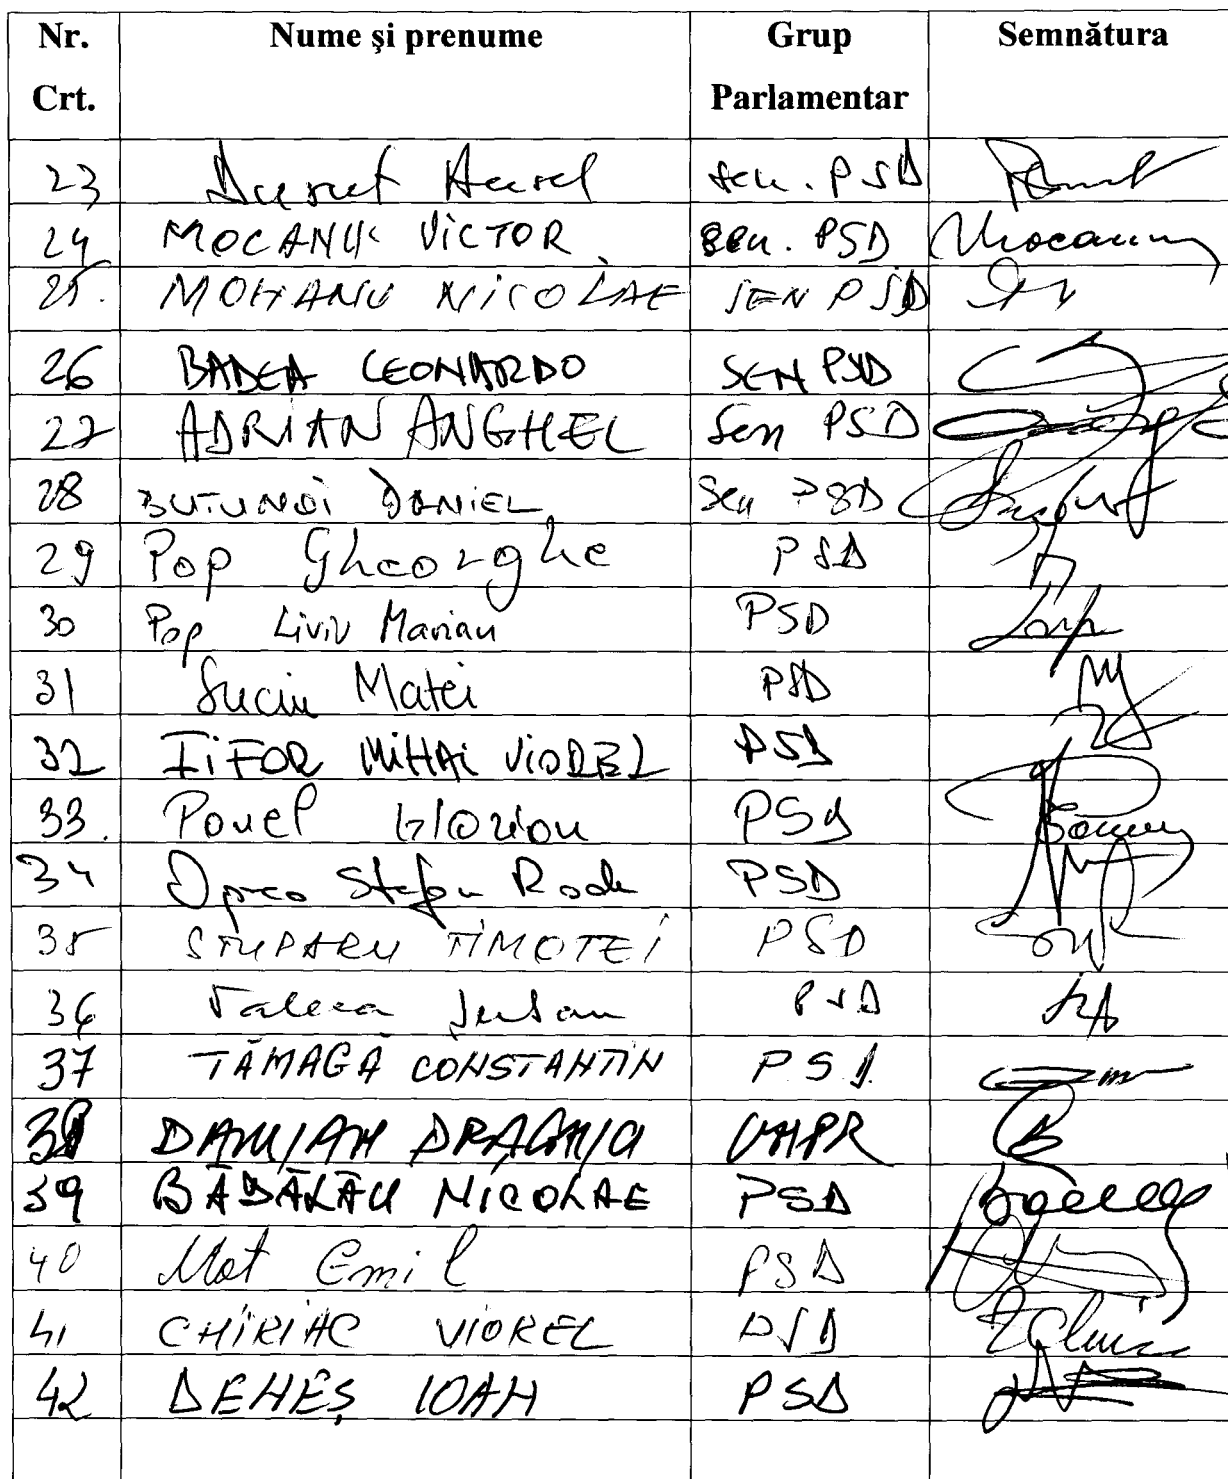 Nr. Crt. Nume și prenume Grup Parlamentar Semnătura
23 Durut Aurel sen. PSD
24 MOCANU VICTOR sen. PSD Mocanu
25. MOHANU NICOLAE SEN PSD
26 BADEA LEONARDO SEN PSD
27 ADRIAN ANGHEL Sen PSD
28 BUTUNOI DANIEL Sen PSD
29 Pop Gheorghe PSD
30 Pop Liviu Marian PSD
31 Suciu Matei PSD
32 FIFOR MIHAI VIOREL PSD
33. Pavel PSD
34 Oprea Stefan Radu PSD
35 STUPARU TIMOTEI PSD
36 Valeca Serban PSD
37 TĂMAGĂ CONSTANTIN PSD
38 DAMIAN DRĂGHICI UNPR
39 BĂDĂLĂU NICOLAE PSD
40 Mot Emil PSD
41 CHIRIAC VIOREL PSD
42 DENEȘ IOAN PSD